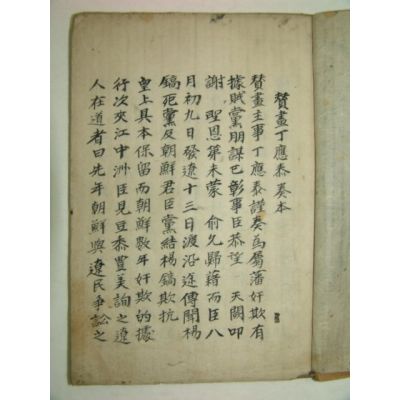 贊畫丁應泰奏本
贊畫主事丁應泰謹奏爲屬藩奸欺有
據賊黨朋謀已彰事臣恭望 天闕叩
謝 聖恩第未蒙 俞允歸藉而臣八
月初九日發遼十三日渡沿途傳聞楊
鎬黨及朝鮮君臣黨結楊鎬欺抗
皇上具本保留而朝鮮數年奸欺的據
行次夾江中洲臣見豆黍豊美詢之遼
人在道者曰先年朝鮮與遼民爭訟之